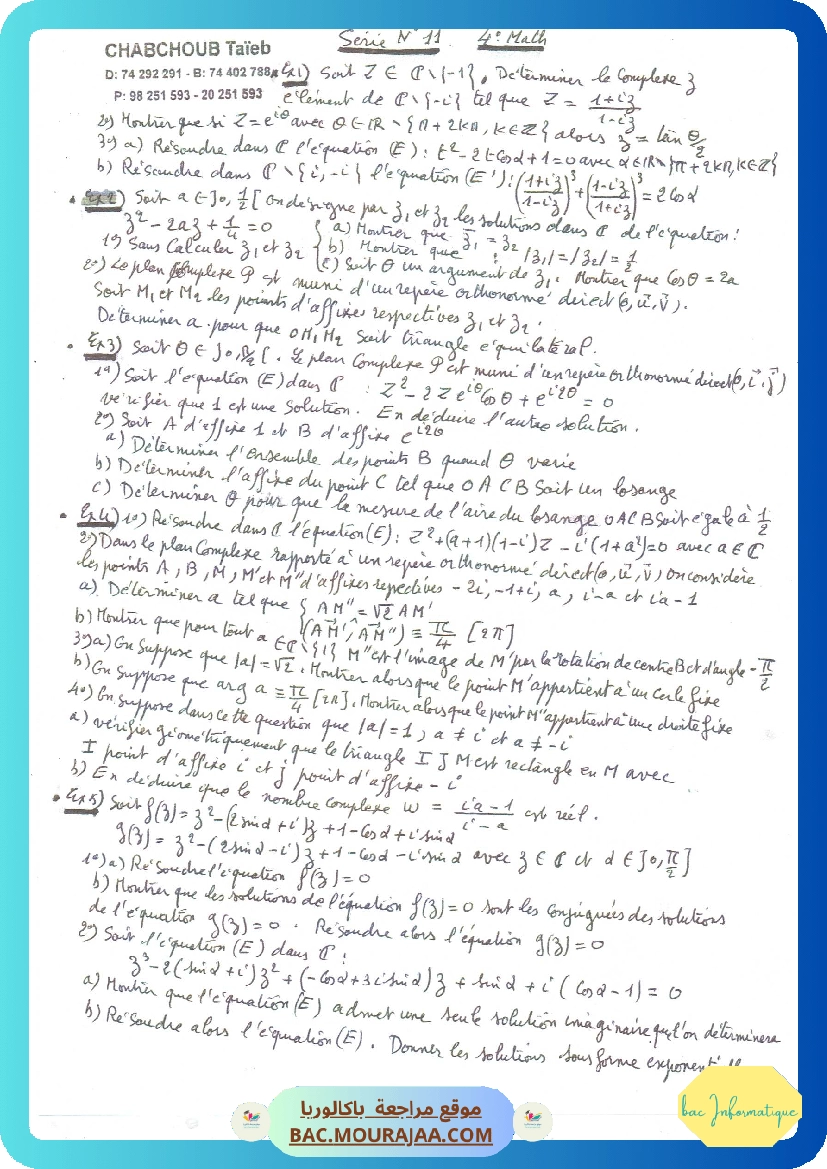 Série N° 11 4e Math
CHABCHOUB Taïeb
D: 74 292 291 - B: 74 402 788
P: 98 251 593 - 20 251 593
Ex1) Soit Z ∈ ℂ \ {-1}, Déterminer le Complexe z
élément de ℂ \ {-i} tel que Z = (1+iz)/(1-iz)
2°) Montrer que si Z = e^{iθ} avec θ ∈ IR \ {π + 2kπ, k∈Z} alors z = tan θ/2
3°) a) Résoudre dans ℂ l'équation (E) : t² - 2t Cos α + 1 = 0 avec α ∈ IR \ {π + 2kπ, k∈Z}
b) Résoudre dans ℂ \ {i, -i} l'équation (E') : ((1+iz)/(1-iz))³ + ((1-iz)/(1+iz))³ = 2 Cos α
Ex2) Soit a ∈ ]0, 1/2[ On désigne par z₁ et z₂ les solutions dans ℂ de l'équation :
z² - 2az + 1/4 = 0
1°) Sans Calculer z₁ et z₂ { a) Montrer que z̄₁ = z₂
b) Montrer que : |z₁| = |z₂| = 1/2
c) Soit θ un argument de z₁. Montrer que Cos θ = 2a
2°) Le plan Complexe P est muni d'un repère orthonormé direct (o, u⃗, v⃗).
Soit M₁ et M₂ les points d'affixes respectives z₁ et z₂.
Déterminer a pour que OM₁M₂ Soit triangle équilatéral.
Ex3) Soit θ ∈ ]0, π/2[. Le plan Complexe P est muni d'un repère orthonormé direct (o, i⃗, j⃗)
1°) Soit l'équation (E) dans ℂ : Z² - 2Z e^{iθ} Cos θ + e^{i2θ} = 0
Vérifier que 1 est une Solution. En déduire l'autre solution.
2°) Soit A d'affixe 1 et B d'affixe e^{i2θ}
a) Déterminer l'ensemble des points B quand θ varie
b) Déterminer l'affixe du point C tel que OACB Soit un losange
c) Déterminer θ pour que la mesure de l'aire du losange OACB soit égale à 1/2
Ex4) 1°) Résoudre dans ℂ l'équation (E) : Z² + (a+1)(1-i)Z - i(1+a²) = 0 avec a ∈ ℂ
2°) Dans le plan Complexe rapporté à un repère orthonormé direct (o, u⃗, v⃗) on considère
les points A, B, M, M' et M" d'affixes respectives -2i, -1+i, a, i-a et ia-1
a) Déterminer a tel que { AM" = √2 AM'
(AM⃗', AM⃗") ≡ π/4 [2π]
b) Montrer que pour tout a ∈ ℂ \ {1} M" est l'image de M' par la rotation de centre B et d'angle -π/2
3°) a) On suppose que |a| = √2. Montrer alors que le point M' appartient à un cercle fixe
b) On suppose que arg a ≡ π/4 [2π]. Montrer alors que le point M" appartient à une droite fixe
4°) On suppose dans cette question que |a| = 1, a ≠ i et a ≠ -i
a) Vérifier géométriquement que le triangle IJM est rectangle en M avec
I point d'affixe i et J point d'affixe -i
b) En déduire que le nombre complexe W = (ia-1)/(i-a) est réel.
Ex5) Soit f(z) = z² - (2sin α + i)z + 1 - Cos α + i sin α
g(z) = z² - (2sin α - i)z + 1 - Cos α - i sin α avec z ∈ ℂ et α ∈ ]0, π/2]
1°) a) Résoudre l'équation f(z) = 0
b) Montrer que les solutions de l'équation f(z) = 0 sont les conjuguées des solutions
de l'équation g(z) = 0. Résoudre alors l'équation g(z) = 0
2°) Soit l'équation (E) dans ℂ :
z³ - 2(sin α + i)z² + (-Cos α + 3i sin α)z + sin α + i(Cos α - 1) = 0
a) Montrer que l'équation (E) admet une seule solution imaginaire que l'on déterminera
b) Résoudre alors l'équation (E). Donner les solutions sous forme
موقع مراجعة باكالوريا
BAC.MOURAJAA.COM
bac Informatique